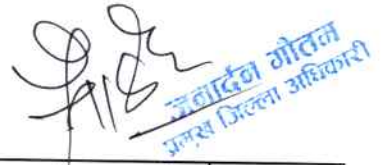 जनार्दन गौतम
प्रमुख जिल्ला अधिकारी